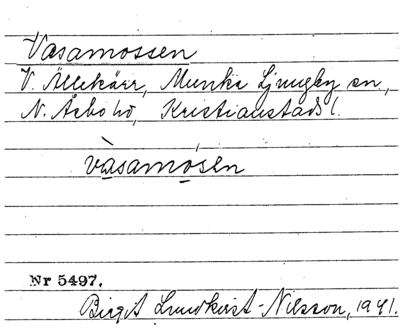 Vasamossen
V. Ällekärr, Munka Ljungby sn,
N. Åsbo hd, Kristianstads l.
vàsamósen
Nr 5497.
Birgit Lundkvist-Nilsson, 1941.